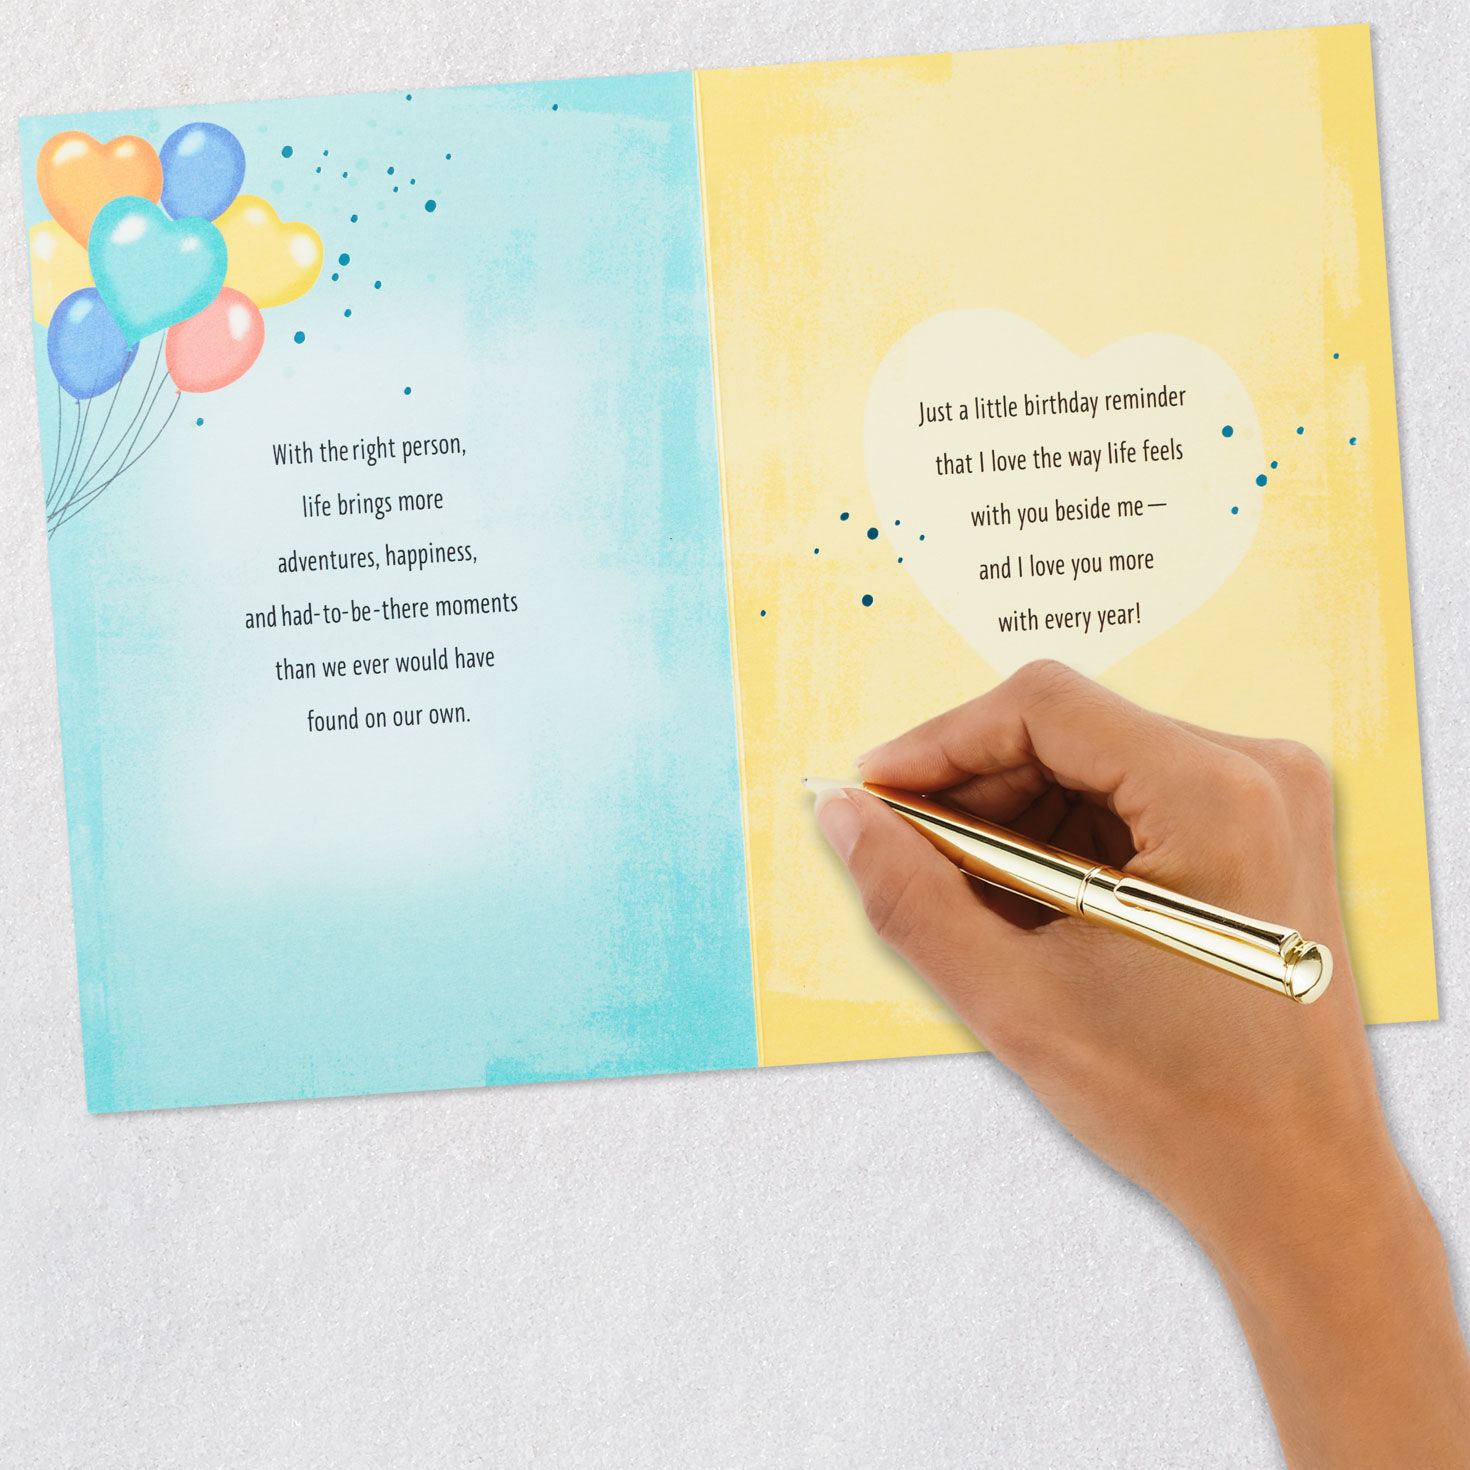 With the right person,
life brings more
adventures, happiness,
and had-to-be-there moments
than we ever would have
found on our own.
Just a little birthday reminder
that I love the way life feels
with you beside me—
and I love you more
with every year!